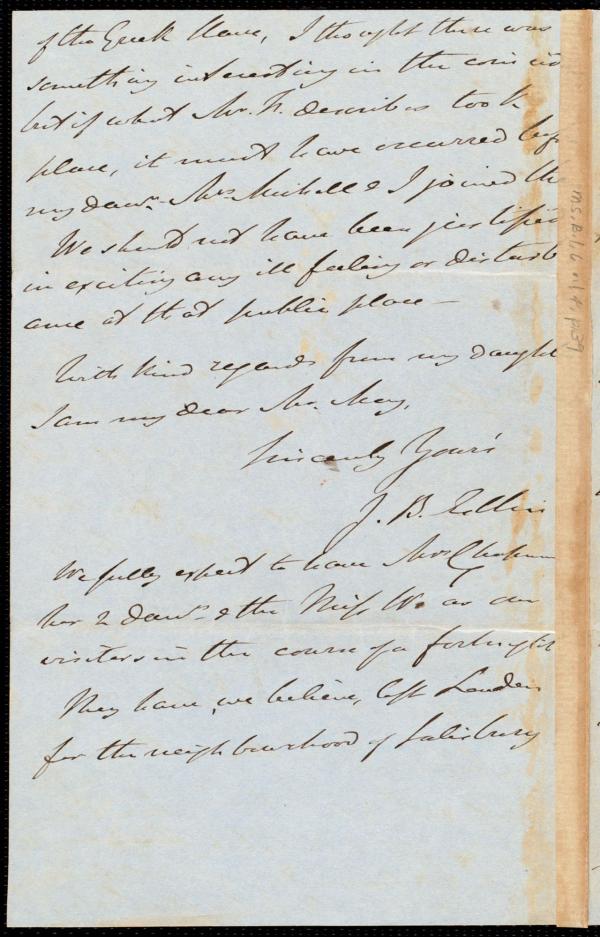 of the Greek Slave, I thought there was
something interesting in the coincid
but if what Mr. F. describes took
place, it must have occurred bef
my daur. Mrs Michell & I joined the
We should not have been justified
in exciting any ill feeling or disturb
ance at that public place —
With kind regards from my daught
I am my dear Mr. May,
Sincerely Yours
J. B. Estlin
We fully expect to have Mrs Chapman
her 2 daurs. & the Miss Ws. as our
visiters in the course of a fortnight
They have, we believe, left London
for the neighbourhood of Salisbury